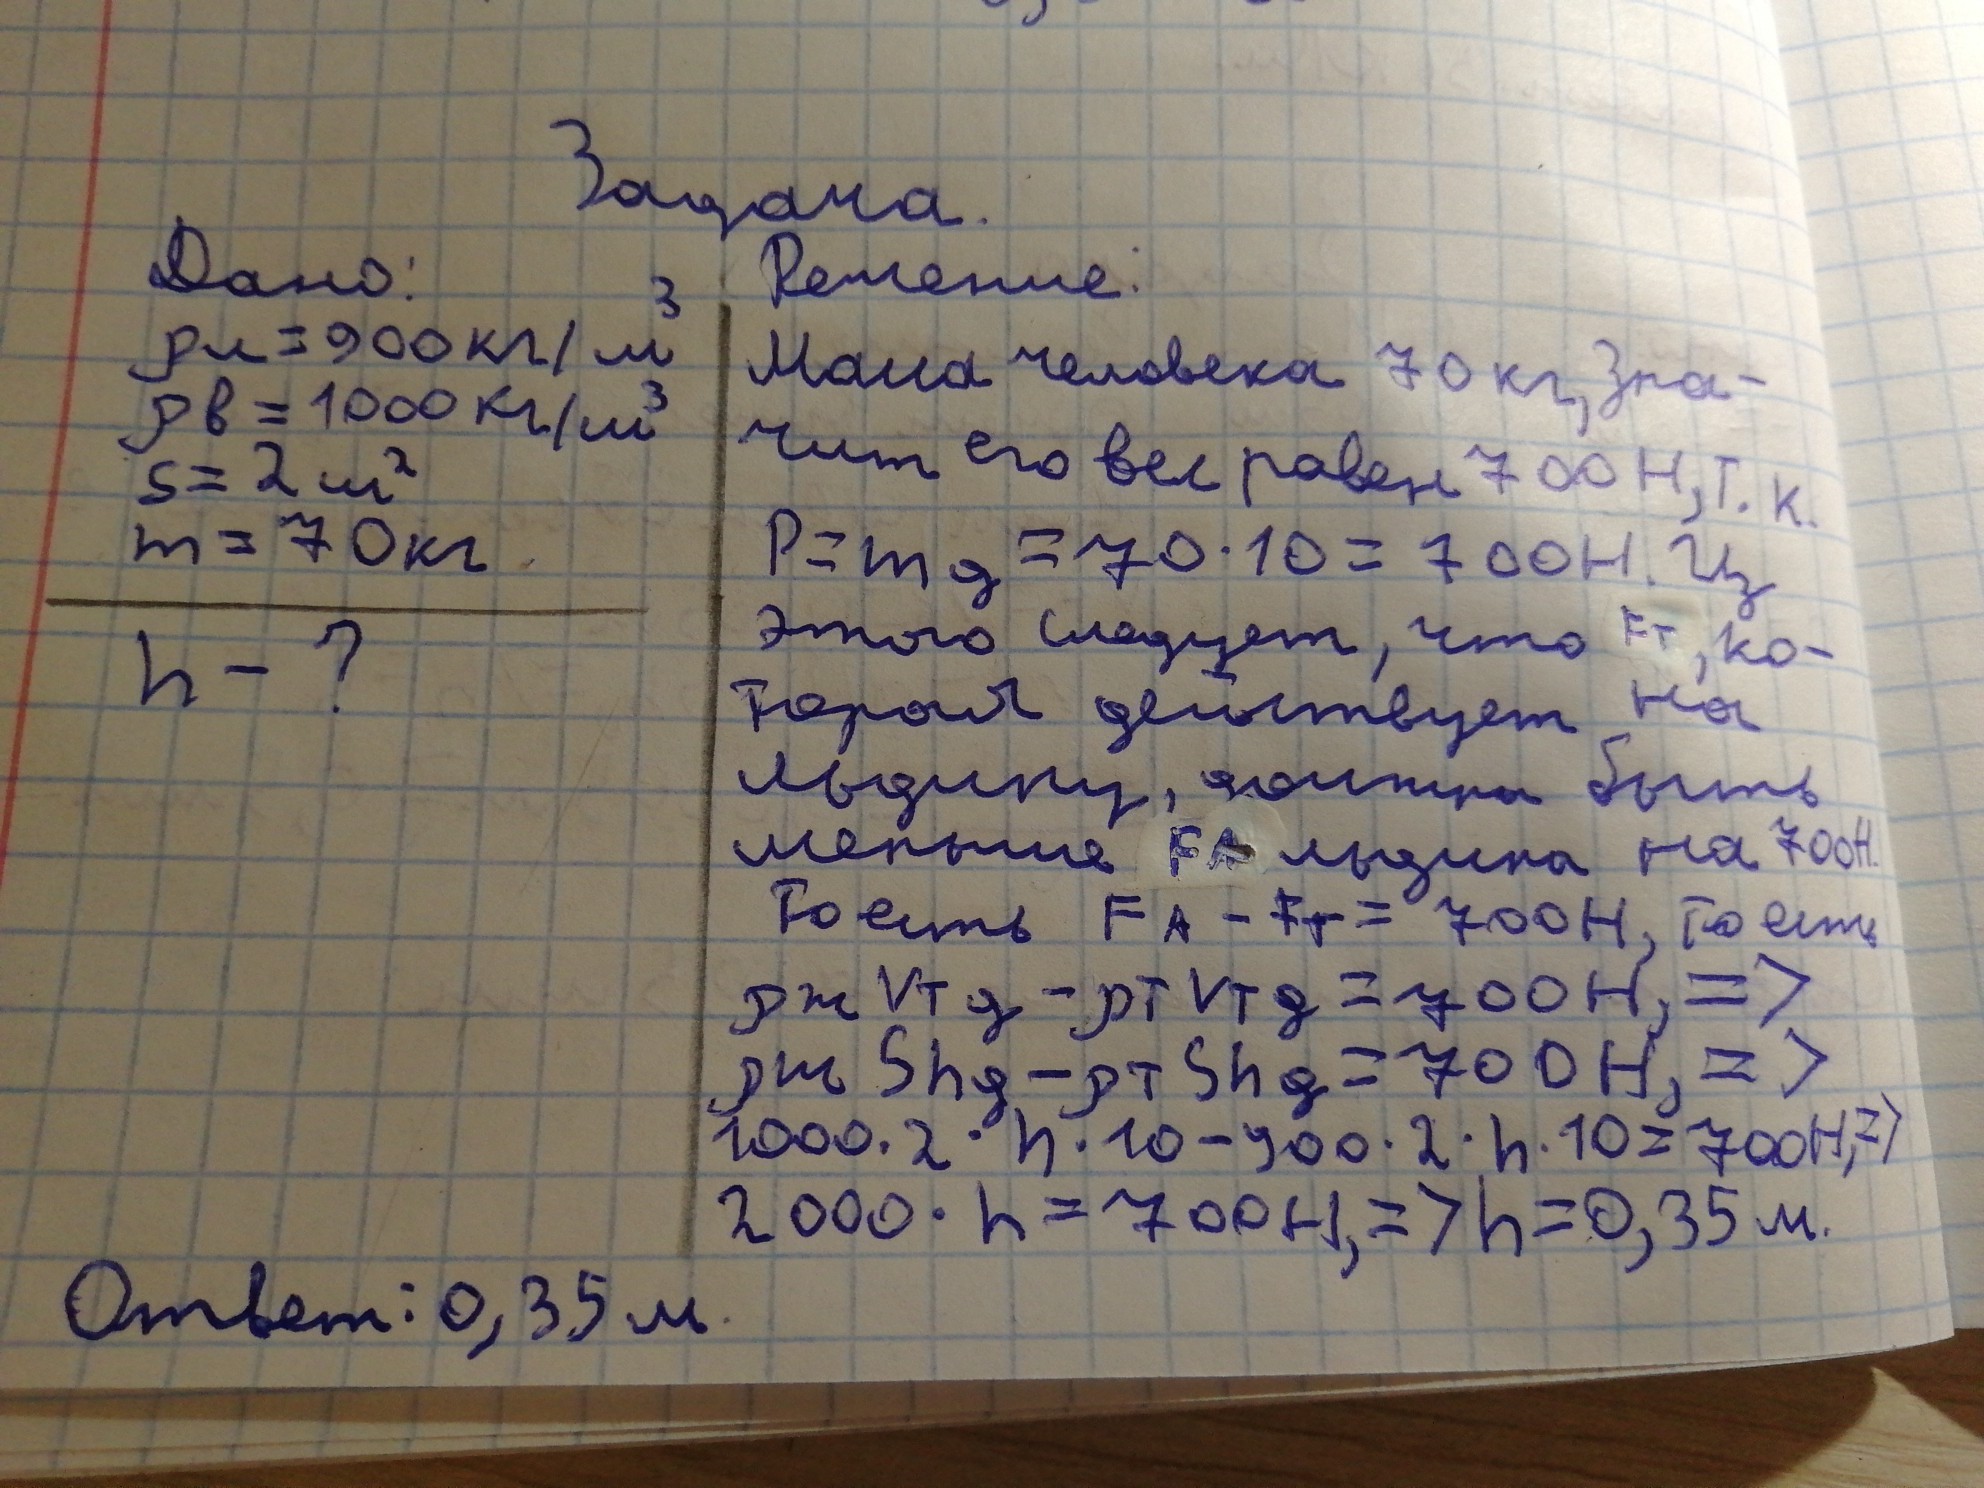 Задача.
Дано:
ρл = 900 кг/м³
ρв = 1000 кг/м³
S = 2 м²
m = 70 кг.
h - ?
Решение:
Масса человека 70 кг, зна-
чит его вес равен 700 Н, т. к.
P = mg = 70 · 10 = 700 Н. Из
этого следует, что Fт, ко-
торая действует на
льдину, должна быть
меньше FА льдина на 700Н.
То есть FА - Fт = 700 Н, то есть
ρж Vт g - ρт Vт g = 700 Н, =>
ρж Shg - ρт Shg = 700 Н, =>
1000 · 2 · h · 10 - 900 · 2 · h · 10 = 700Н, =>
2000 · h = 700Н, => h = 0,35 м.
Ответ: 0,35 м.